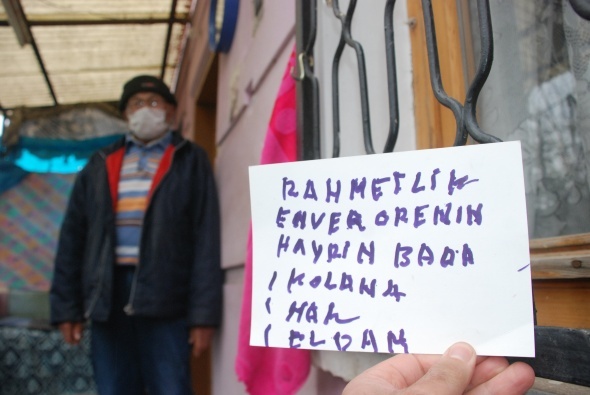 RAHMETLİK
ENVER ÖRENİN
HAYRIN BABA
1 KOLANA
1 HAK
1 ELDAM